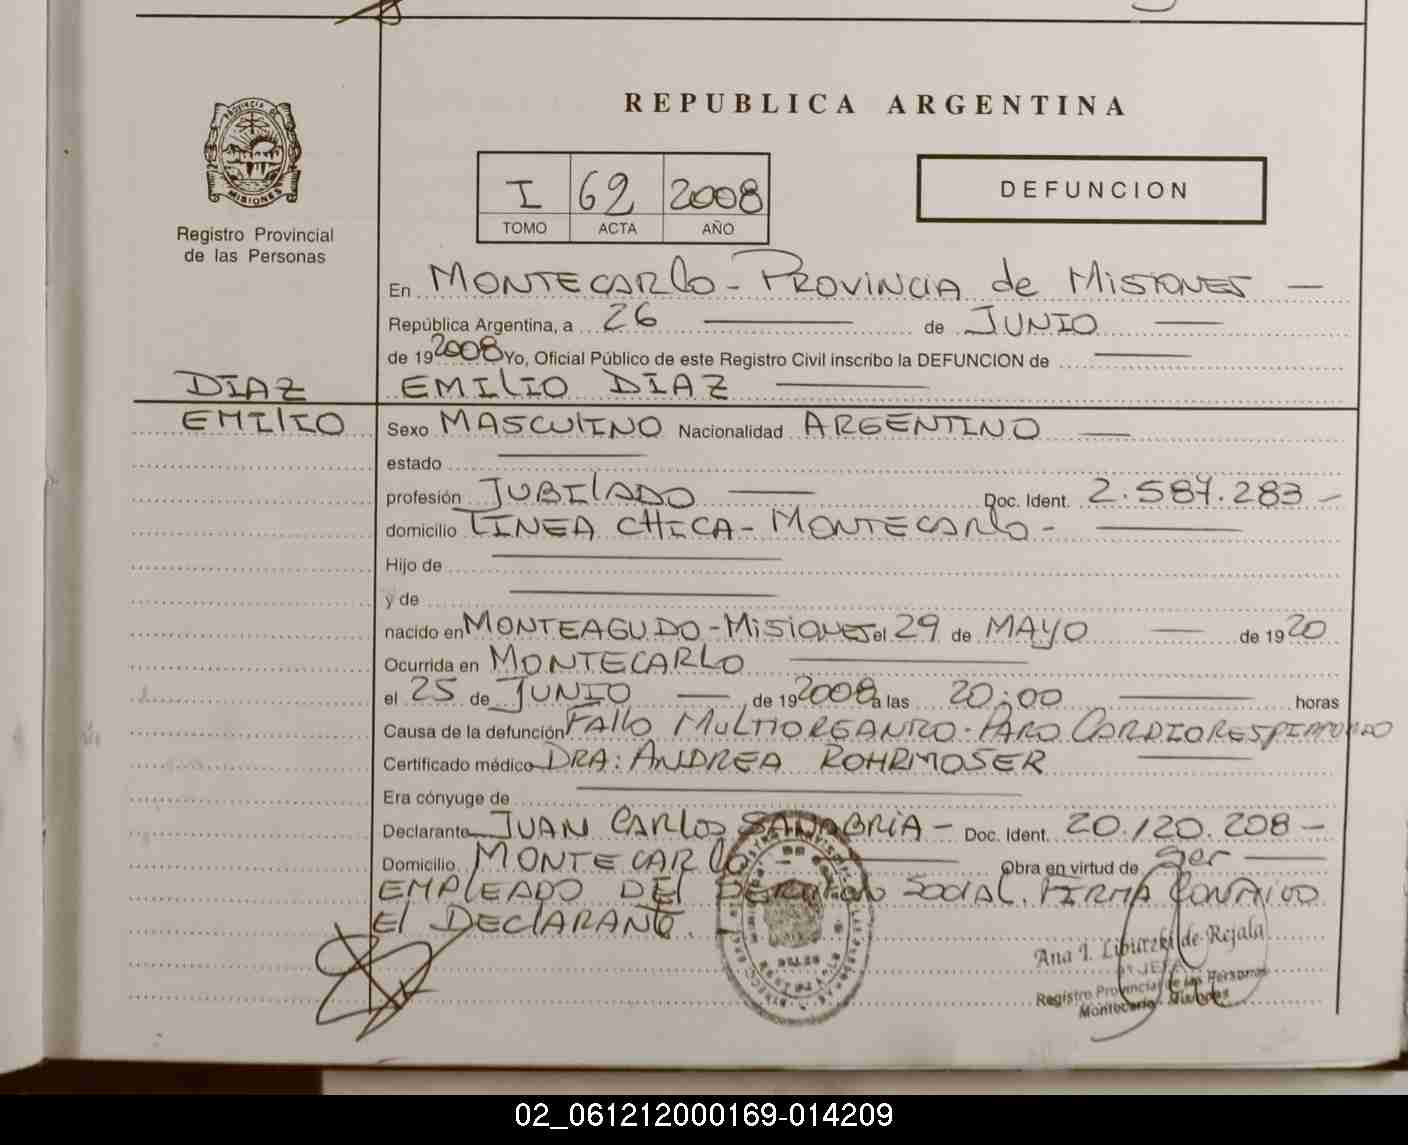 REPUBLICA ARGENTINA
PROVINCIA DE
MISIONES
Registro Provincial
de las Personas
I 62 2008
TOMO ACTA AÑO
DEFUNCION
En MONTECARLO - PROVINCIA de MISIONES —
República Argentina, a 26 — de JUNIO —
de 19 2008 Yo, Oficial Público de este Registro Civil inscribo la DEFUNCION de —
DIAZ
EMILIO
EMILIO DIAZ —
Sexo MASCULINO Nacionalidad ARGENTINO —
estado —
profesión JUBILADO — Doc. Ident. 2.587.283 -
domicilio LINEA CHICA - MONTECARLO - —
Hijo de —
y de —
nacido en MONTEAGUDO - MISIONES el 29 de MAYO — de 19 20
Ocurrida en MONTECARLO —
el 25 de JUNIO — de 19 2008 a las 20:00 — horas
Causa de la defunción FALLO MULTIORGANICO - PARO CARDIORESPIRATORIO
Certificado médico DRA: ANDREA ROHRMOSER —
Era cónyuge de —
Declarante JUAN CARLOS SANABRIA - Doc. Ident. 20.120.208 -
Domicilio MONTECARLO — Obra en virtud de ser —
EMPLEADO DEL SOCIAL. FIRMA CONMIGO
El DECLARANTE.
Ana I. de Rejala
JEFA
Registro Provincial de las Personas
Montecarlo - Misiones
02_061212000169-014209